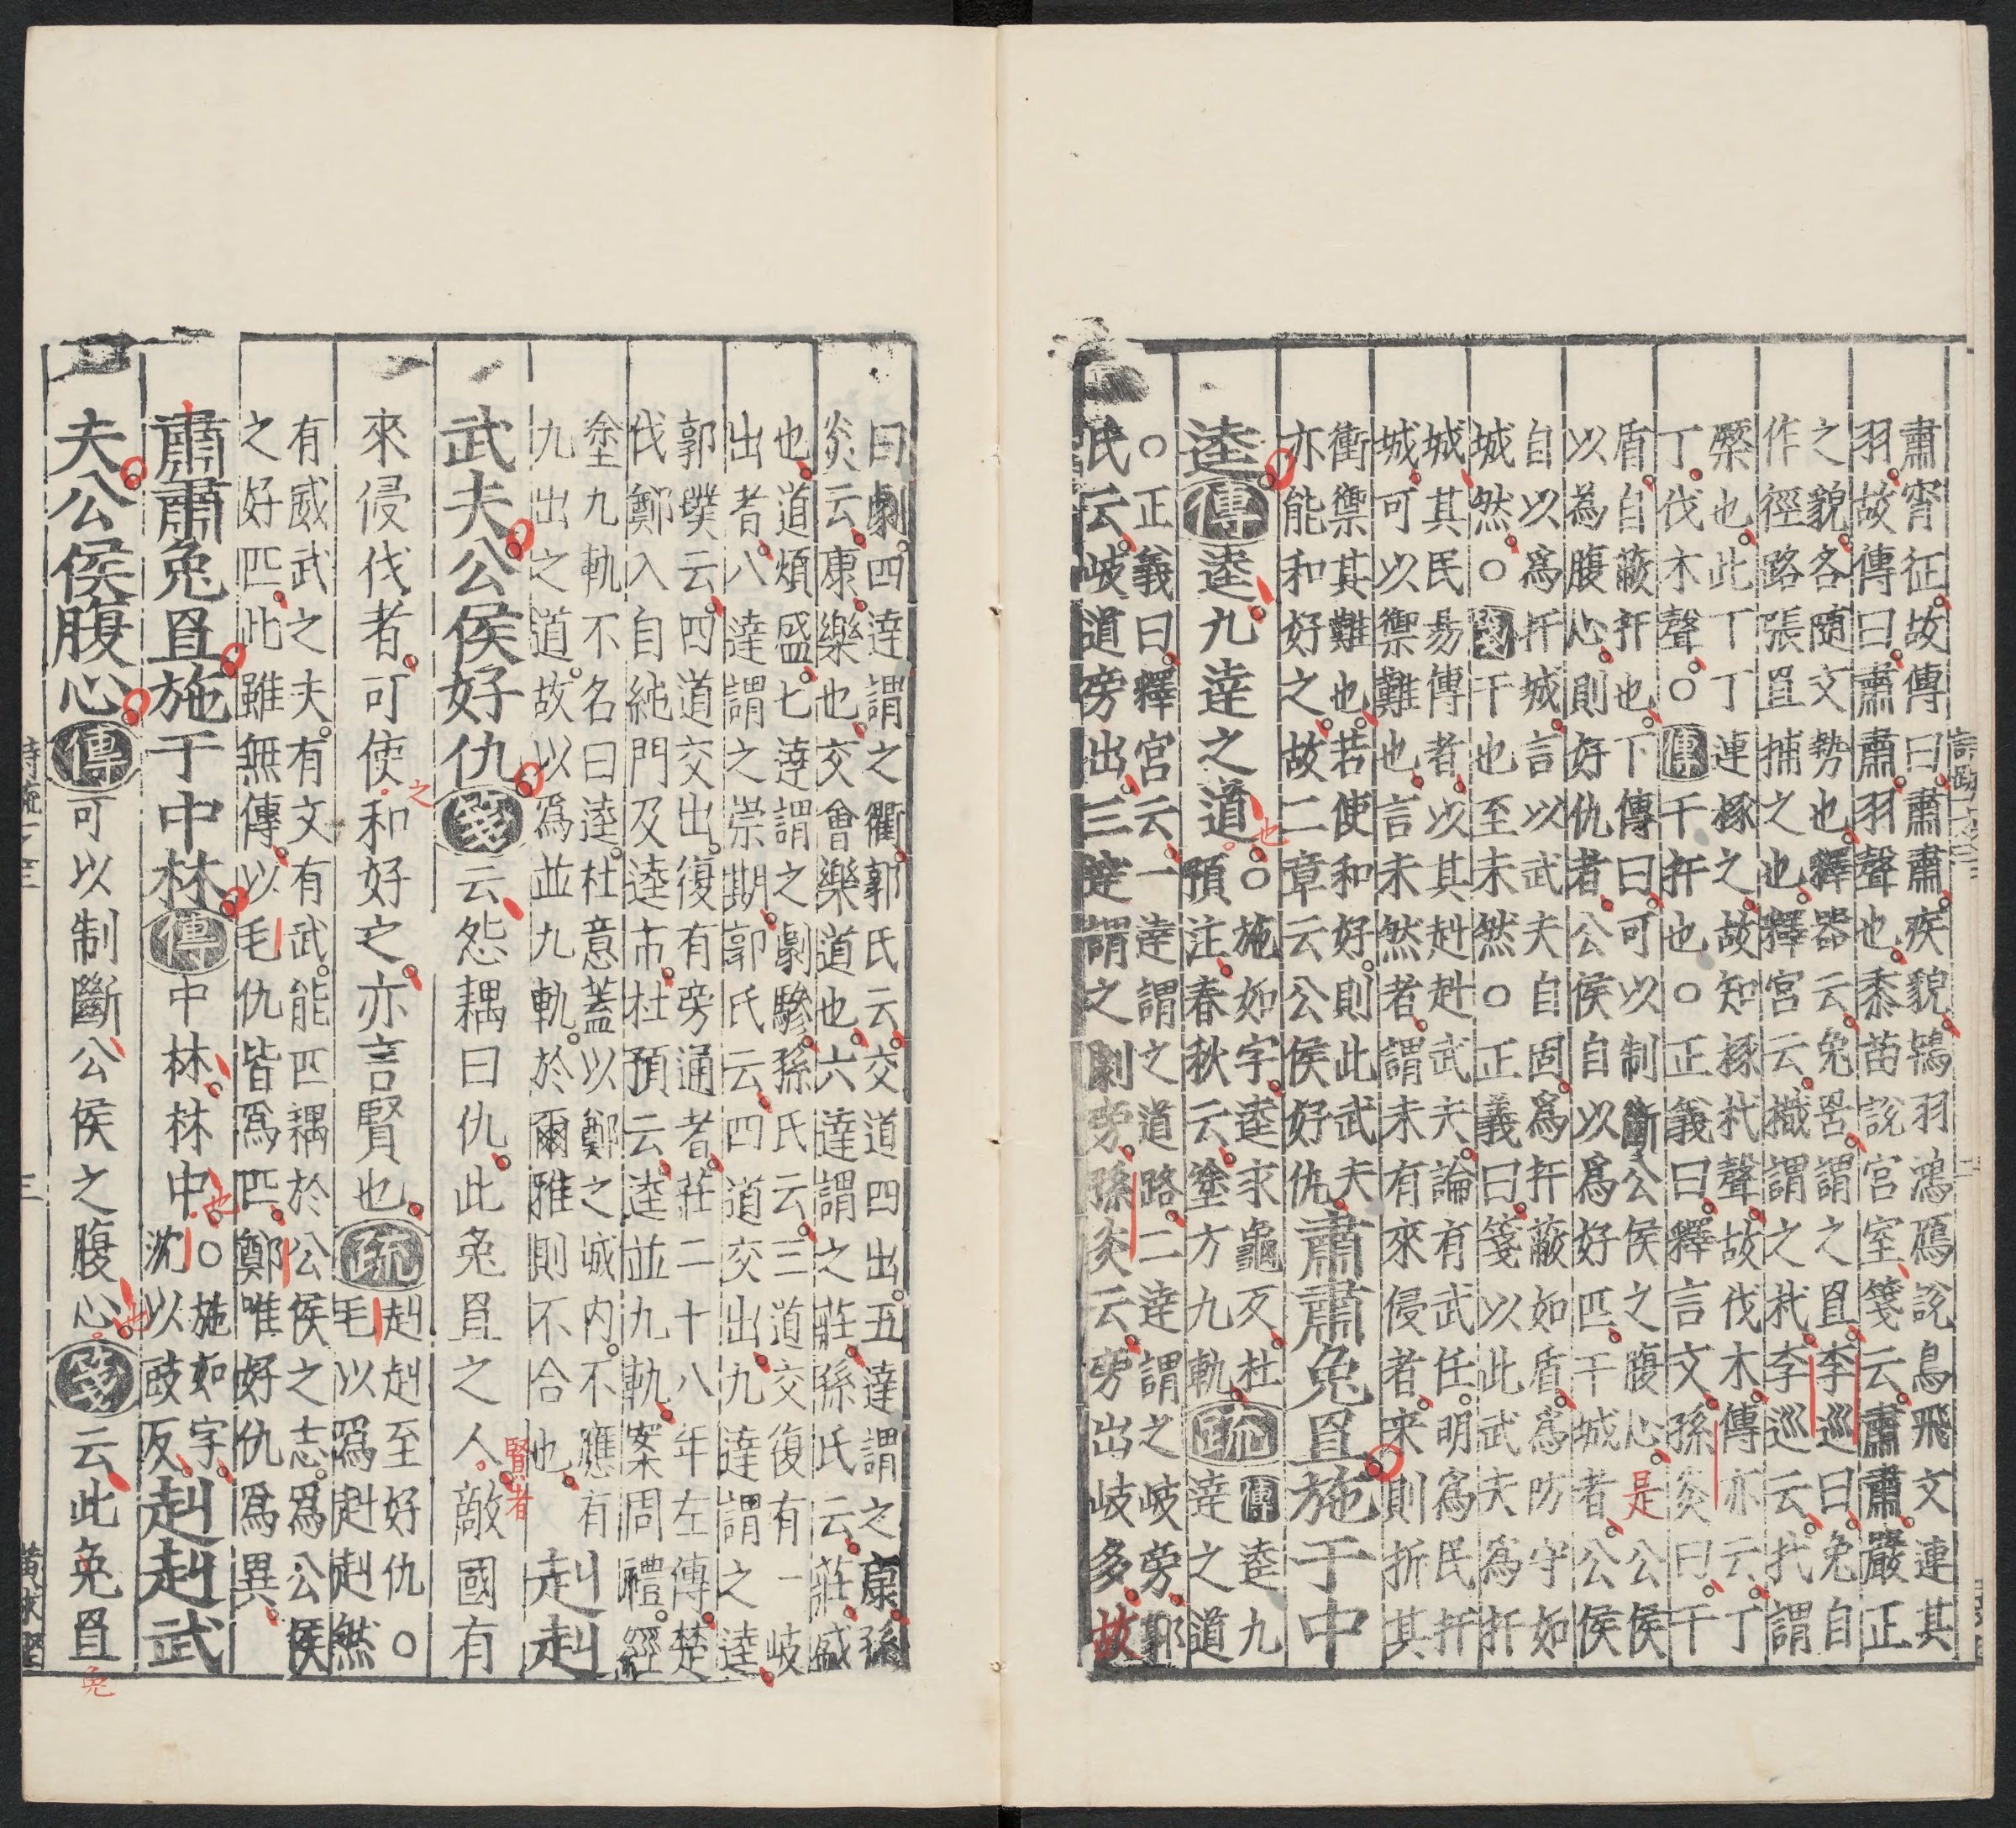 肅宵征故傳曰肅肅疾貌鴇羽鴻鴈說鳥飛文連其
羽故傳曰肅肅羽聲也黍苗說宮室箋云肅肅嚴正
之貌各隨文勢也釋器云兔罟謂之罝李巡曰兔自
作徑路張罝捕之也釋宮云樴謂之杙李巡云杙謂
橜也此丁丁連椓之故知椓杙聲故伐木傳亦云丁
丁伐木聲○傳干扞也○正義曰釋言文孫炎曰干
盾自蔽扞也下傳曰可以制斷公侯之腹心是公侯
以為腹心則好仇者公侯自以爲好匹干城者公侯
自以爲扞城言以武夫自固爲扞蔽如盾爲防守如
城然○箋干也至未然○正義曰箋以此武夫爲扞
城其民易傳者以其赳赳武夫論有武任明爲民扞
城可以禦難也言未然者謂未有來侵者来則折其
衝禦其難也若使和好則此武夫
亦能和好之故二章云公侯好仇
肅肅兔罝施于中
逵傳逵九逹之道也○施如字逵求龜反杜
預注春秋云塗方九軌
疏傳逵九
逹之道
○正義曰釋宮云一逹謂之道路二逹謂之岐旁郭
氏云岐道旁出三逹謂之劇旁孫炎云旁出岐多故
曰劇四逹謂之衢郭氏云交道四出五逹謂之康孫
炎云康樂也交會樂道也六逹謂之莊孫氏云莊盛
也道煩盛七逹謂之劇驂孫氏云三道交復有一岐
出者八逹謂之崇期郭氏云四道交出九逹謂之逵
郭璞云四道交出復有旁通者莊二十八年左傳楚
伐鄭入自純門及逵市杜預云逵並九軌案周禮經
塗九軌不名曰逵杜意蓋以鄭之城内不應有
九出之道故以爲並九軌於爾雅則不合也
赳赳
武夫公侯好仇箋云怨耦曰仇此兔罝之人賢者敵國有
來侵伐者可使之和好之亦言賢也疏赳赳至好仇○
毛以爲赳赳然
有威武之夫有文有武能匹耦於公侯之志爲公侯
之好匹此雖無傳以毛仇皆爲匹鄭唯好仇爲異
肅肅兔罝施于中林傳中林林中也○施如字
沈以豉反
赳赳武
夫公侯腹心傳可以制斷公侯之腹心也箋云此兔罝
兔
三